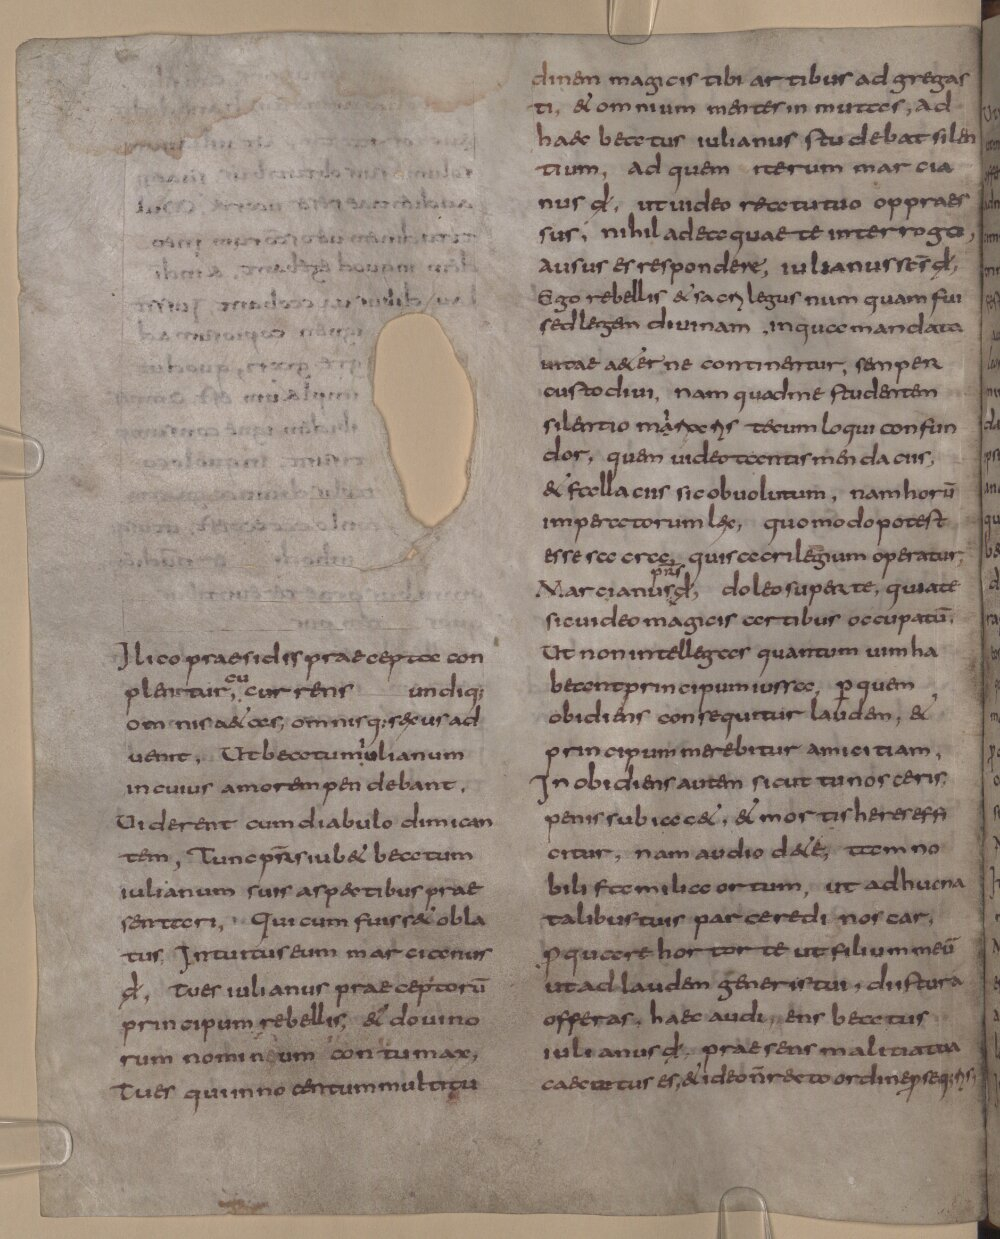 Ilico praesidis praecepta con
plentur, cu currens undiq;
omnis aetas, omnisq; sexus ad
venit, Ut beatum iulianum
in cuius amorem pendebant,
Viderent cum diabulo dimican
tem, Tunc prses iubet beatum
iulianum suis aspectibus prae
sentari, Qui cum fuisset obla
tus, Intuitus eum marcianus
d, Tu es iulianus praeceptorū
principum rebellis, et dovino
rum nominum contumax,
Tu es qui innocentum multitu
dinem magicis tibi artibus adgregas
ti, et omnium mentes inmuttas, Ad
haec beatus iulianus studebat silen
tium, Ad quem iterum marcia
nus d, ut video reatu tuo oppraes
sus, nihil ad ea quae te interrogo,
Ausus es respondere, iulianus scs d,
Ego rebellis et sacrilegus numquam fui
sed legem divinam in qua mandata
vitae aeterne continentur, semper
custodivi, nam quad me studentem
silentio
tecum loqui confun
dor, quem video tantis mendaciis,
et fallaciis sic obvolutum, nam horū
imperatorum lex, quomodo potest
esse sacra, quis sacrilegium operatur,
Marcianus prses d, doleo super te, quia te
sic video magicis artibus occupatū,
Ut non intellegas quantum vim ha
beant principum iussa, per quem
obidiens consequitur laudem, et
principum merebitur amicitiam,
Inobidiens autem sicut tu nosceris
penis subiacet, et mortis heres effi
citur, nam audio de te, tam no
bili familia ortum, ut adhuc na
talibus tuis par ceredi noscar,
Pquare hortor te ut filium meū
ut ad laudem generis tui, diis tura
offeras, haec audiens beatus
iulianus d, praesens malitia tua
caecatus es, et ideo n recto ordine